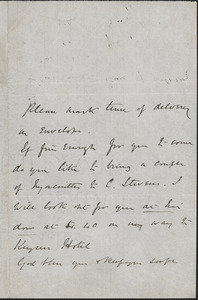 Please mark time of delivery
on Envelope.
If fine enough for you to come
do you like to bring a couple
of Hyacinths to C. Stevens. I
will look out for you at his
door at 4.40 on my way to
Hotel
God bless you